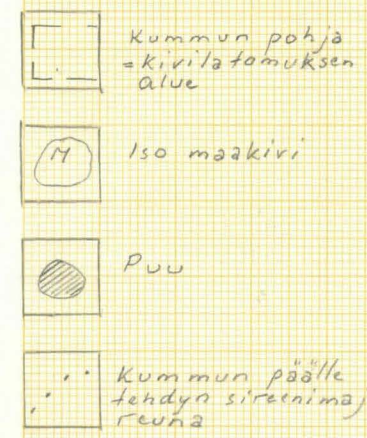 Kummun pohja
= Kivilatomuksen
alue
M
Iso maakivi
Puu
Kummun päälle
tehdyn sireenimaj
reuna